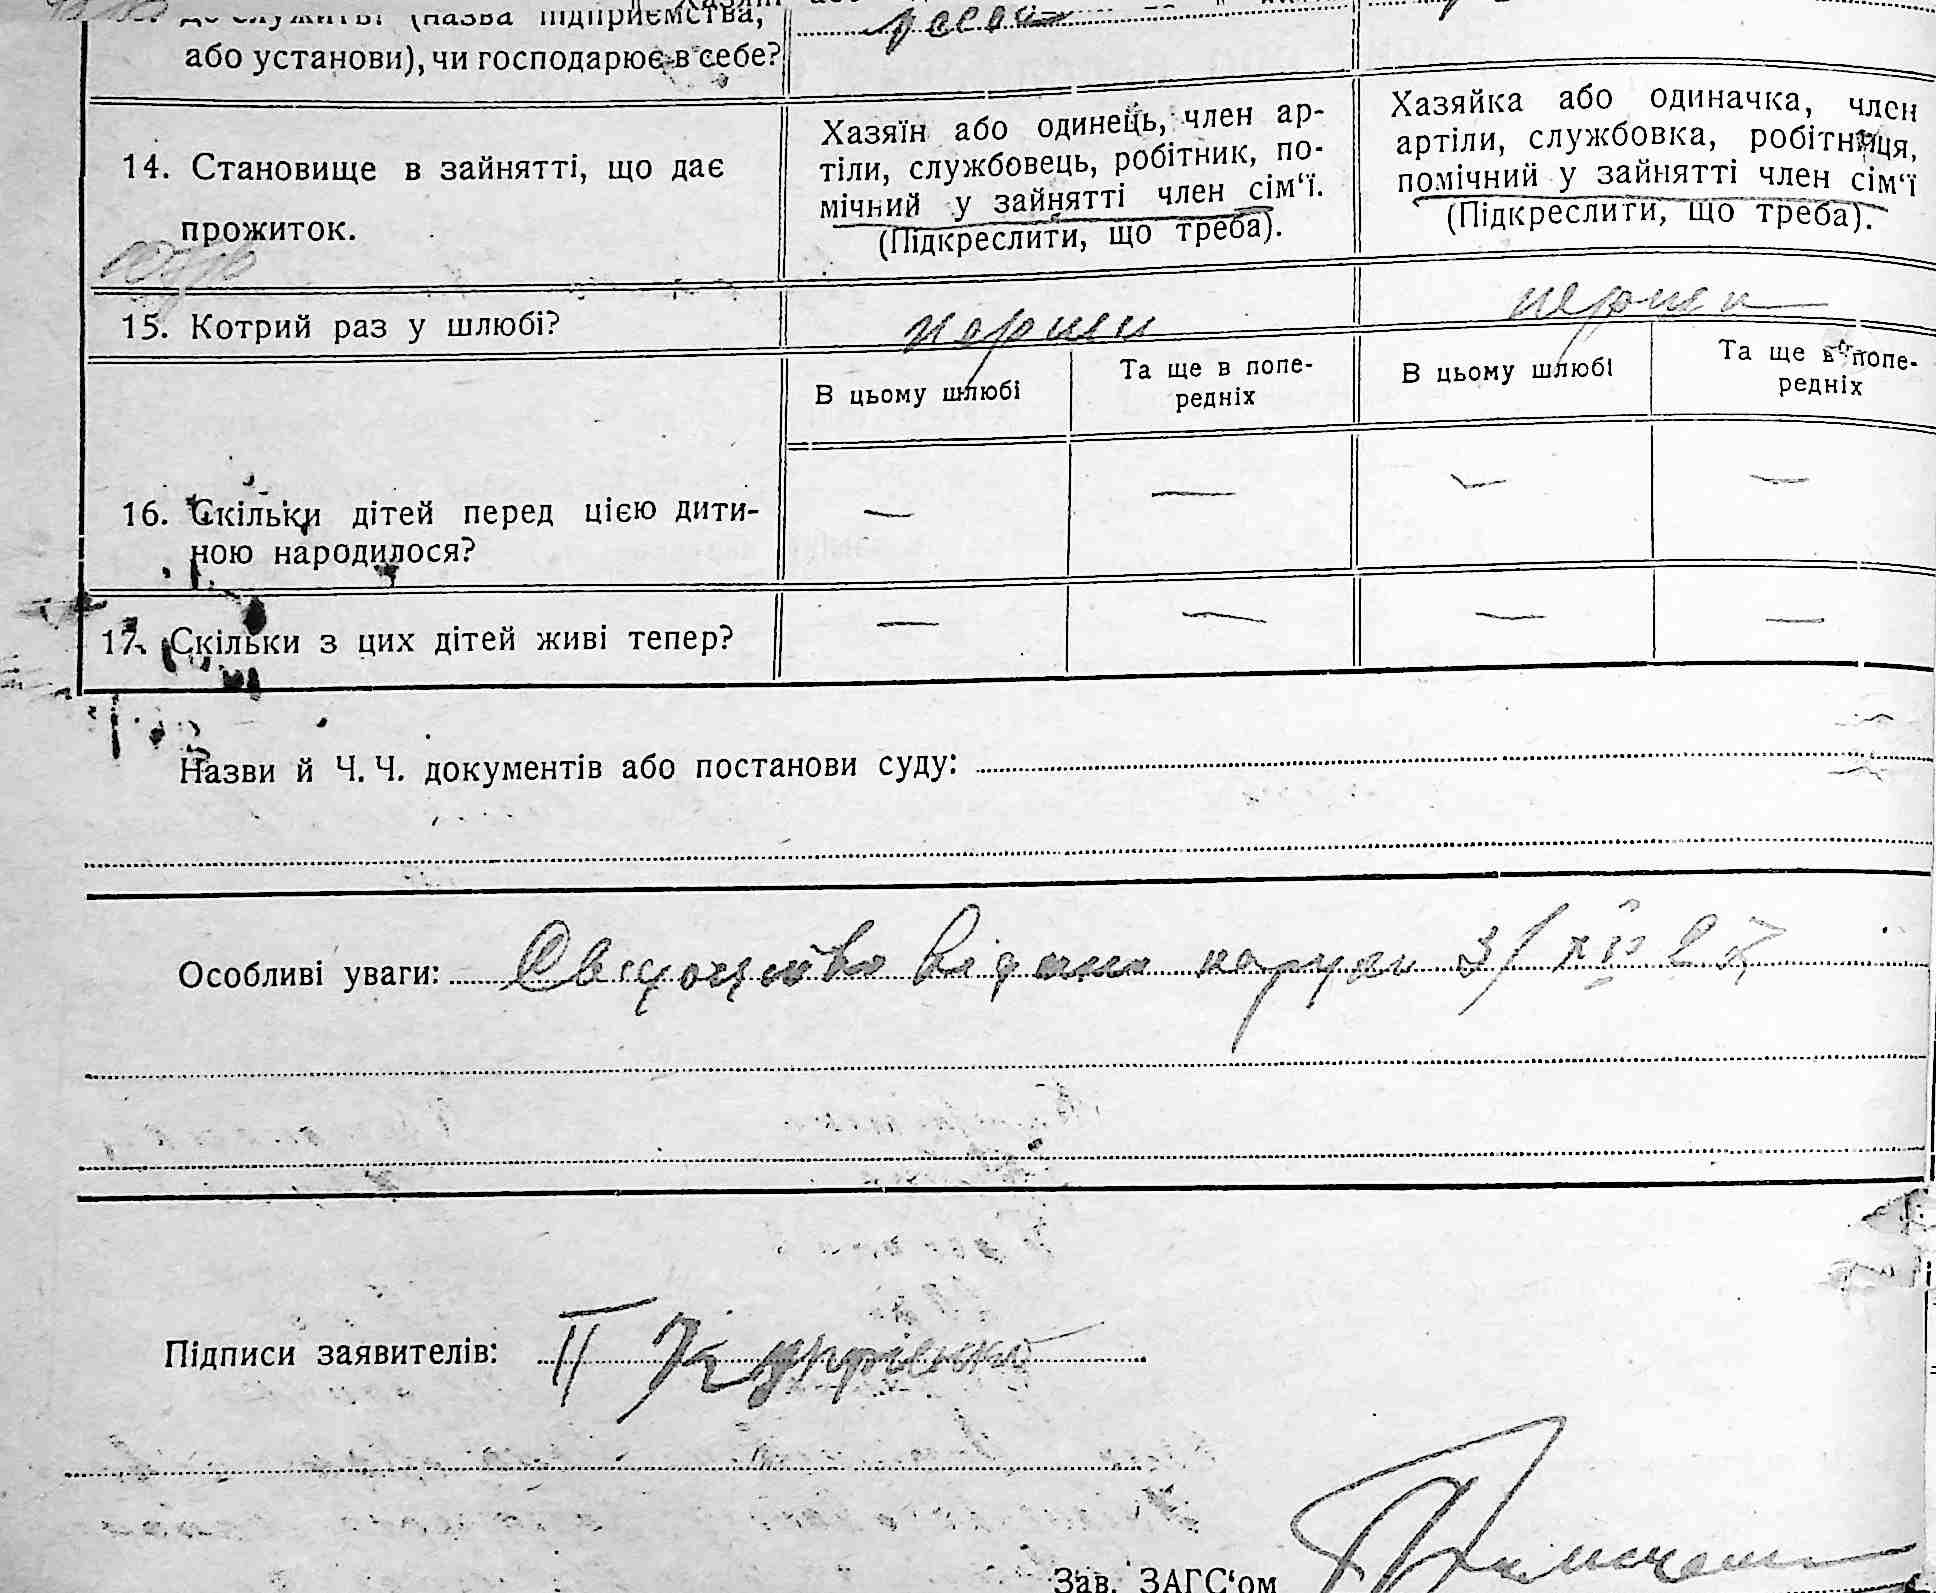 до служить? (назва підприємства,
або установи), чи господарює в себе?
14. Становище в зайнятті, що дає
прожиток.
Хазяїн або одинець, член ар-
тіли, службовець, робітник, по-
мічний у зайнятті член сім‘ї.
(Підкреслити, що треба).
Хазяйка або одиначка, член
артіли, службовка, робітниця,
помічний у зайнятті член сім‘ї
(Підкреслити, що треба).
15. Котрий раз у шлюбі?
перши
перши
В цьому шлюбі
Та ще в попе-
редніх
В цьому шлюбі
Та ще в попе-
редніх
16. Скільки дітей перед цією дити-
ною народилося?
— — — —
17. Скільки з цих дітей живі тепер?
— — — —
Назви й Ч. Ч. документів або постанови суду:
Особливі уваги: видано на руки 3/XII
Підписи заявителів:
Зав. ЗАГС‘ом